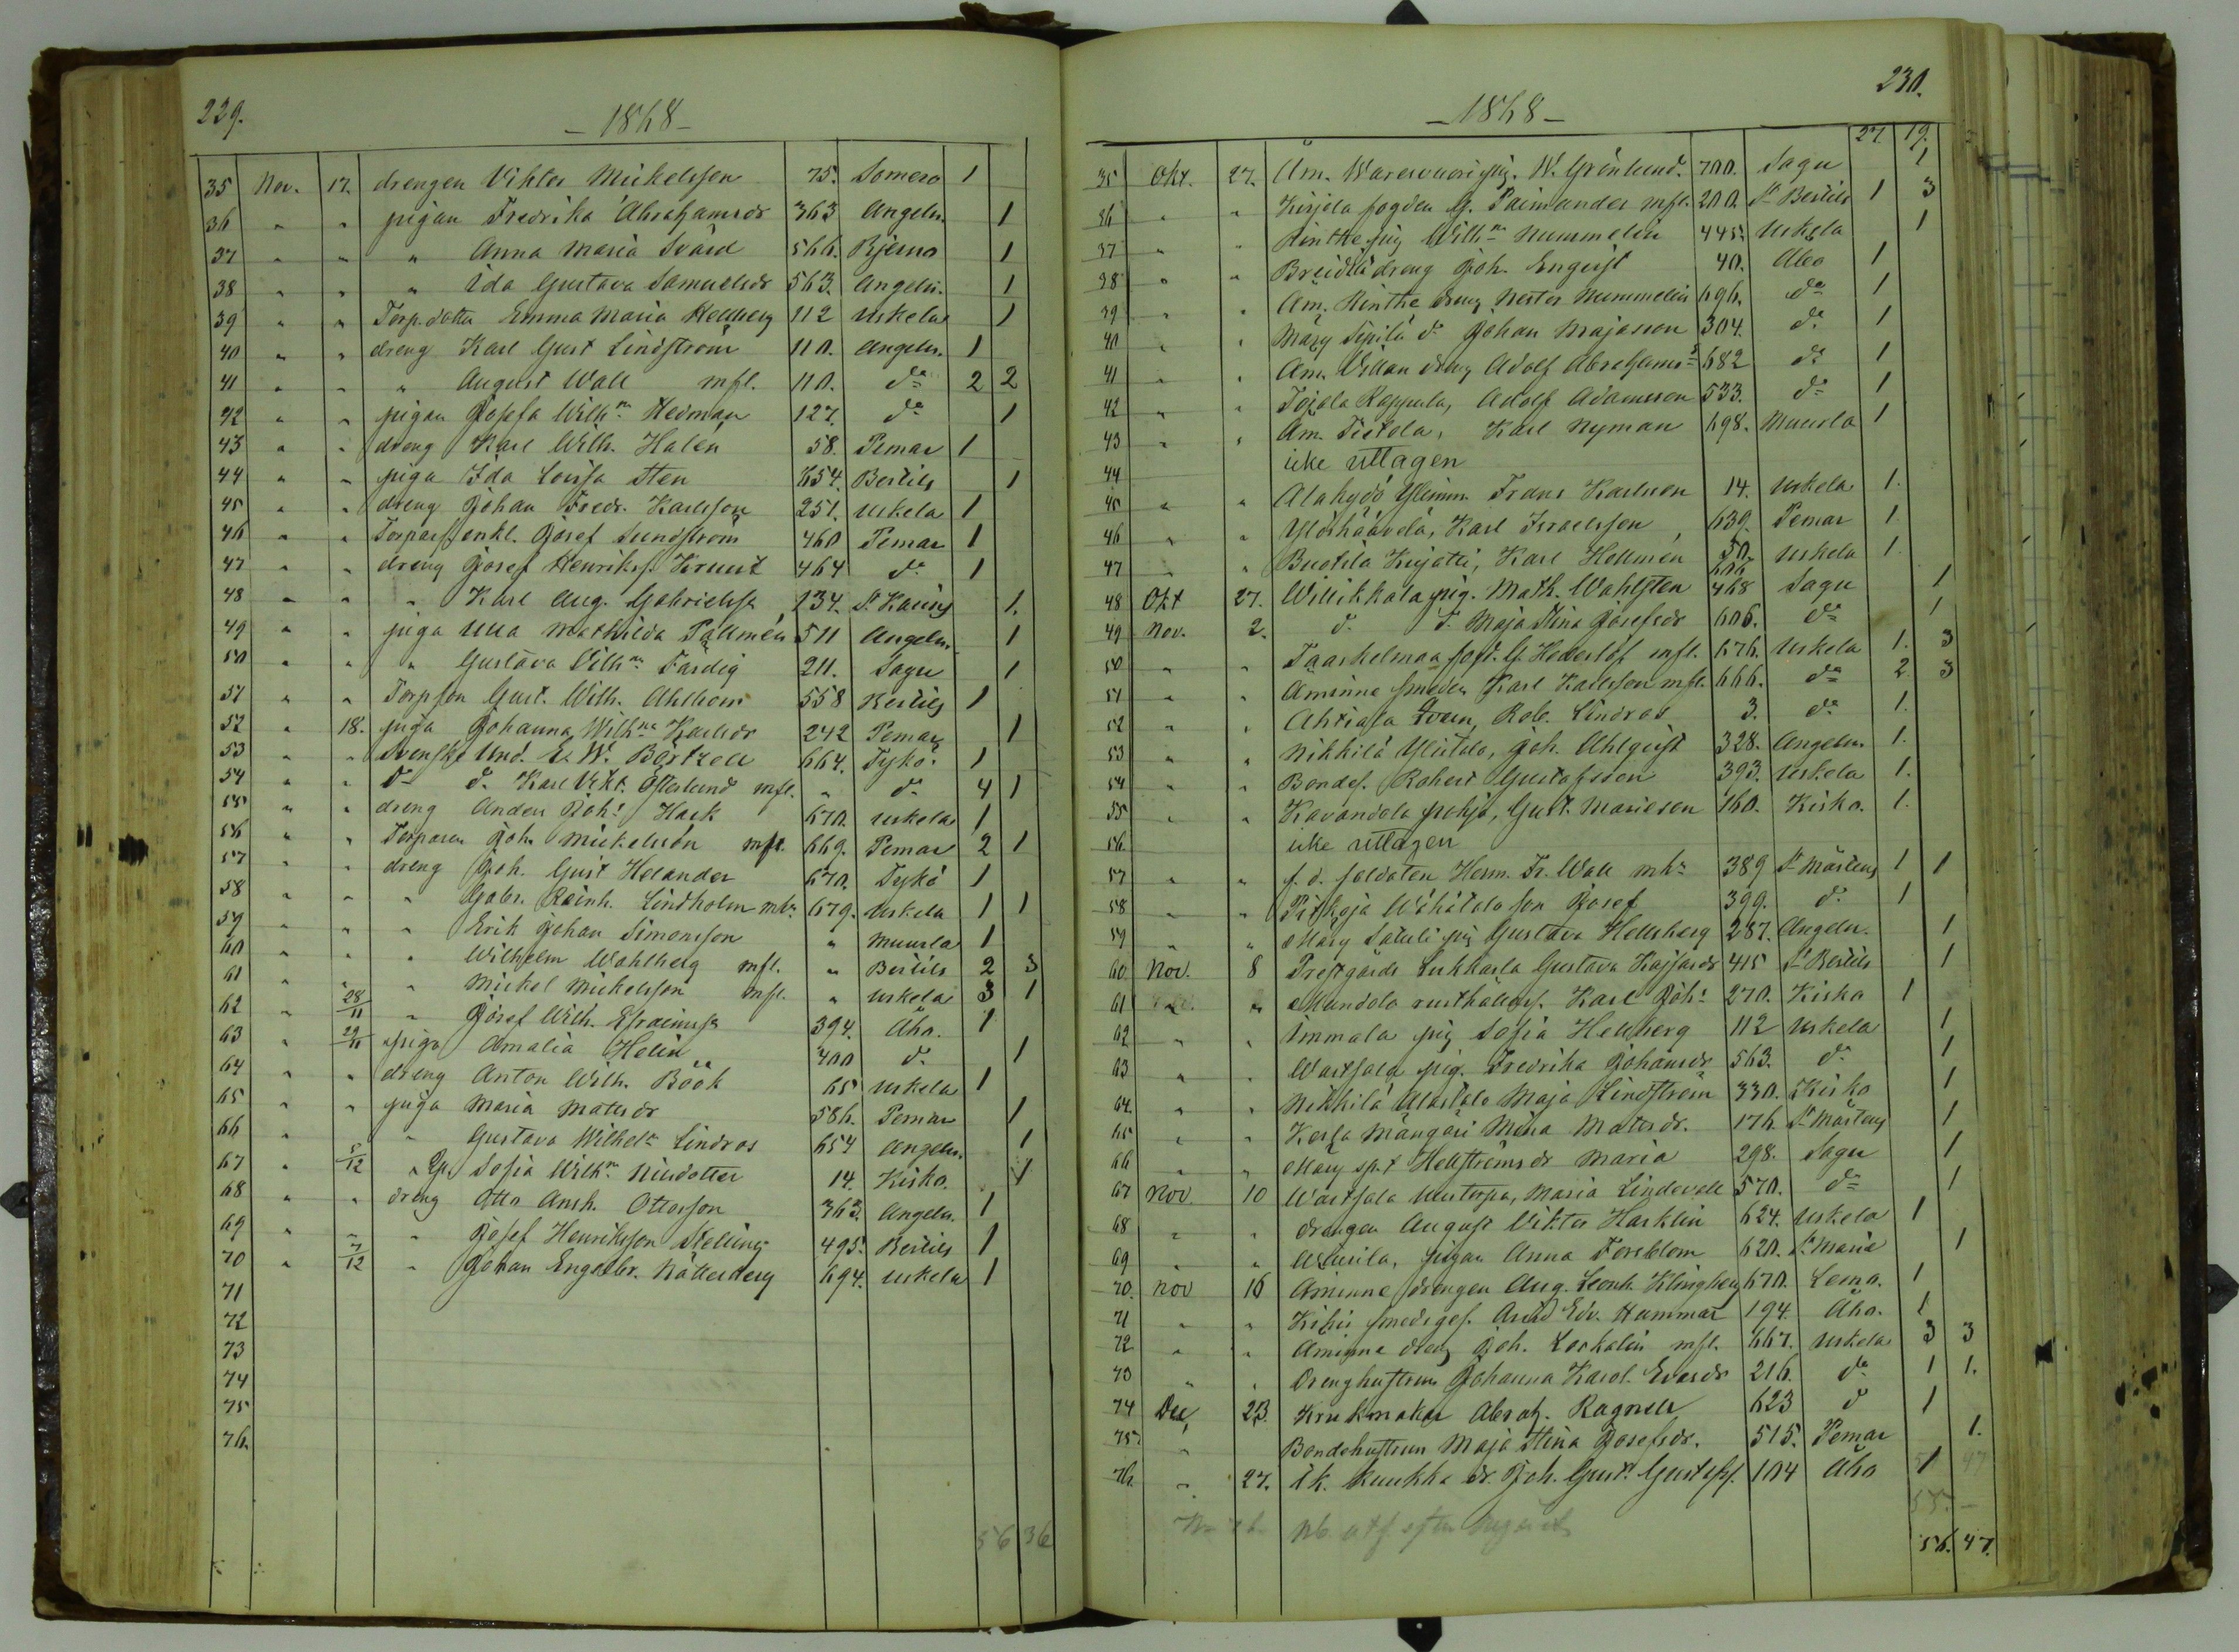 229.
- 1868 -
35 Nov. 17. drengen Viktor Mickelsson 75. Somero 1
36 " " pigan Fredrika Abrahamsdr 363 Angeln. 1
37 " " " Anna Maria Svärd 566. Bjerno 1
38 " " " Ida Gustava Samuelsdr 563. Angeln. 1
39 " " Torp.dottr Emma Maria Hellberg 112 Uskela 1
40 " " dreng Karl Gust Lindström 110. Angeln. 1
41 " " " August Wall mfl. 110. do 2 2
42 " " pigan Josefa Wilhna Hedman 127. do 1
43 " " dreng Karl Wilh. Halen 58. Pemar 1
44 " " piga Ida Lovisa Sten 654. Bertils 1
45 " " dreng Johan Fredr. Karlsson 251. Uskela 1
46 " " Josef Sundström 460 Pemar 1
47 " " dreng Josef Henrikss. 464 do 1
48 " " " Karl Aug. Gabrielsson 134. St. Karins 1.
49 " " piga Ulla Mathilda Pallmén 511 Angeln. 1
50 " " " Gustava Vilhna Färdig 211. Sagu 1
51 " " Torpson Gust. Wilh. Ahlbom 558 Bertils 1
52 " 18. piga Johanna Wilhna Karlsdr 242 Pemar 1
53 " " Svenske Und. E. W. 664. Tyko. 1
54 " " do do Karl Vikt. Österlund mfl. " do 4 1
55 " " dreng Anders Joh. Hack 670. Uskela 1
56 " " Torparen Joh. Mickelsson mfl. 669. Pemar 2 1
57 " " dreng Joh. Gust Helander 670. Tykö 1
58 " " " Gabr. Reinh. Lindholm mh. 679. Uskela 1 1
59 " " " Erik Johan Simonsson " Muurla 1
60 " " " Wilhelm Wahlberg mfl. " Bertils 2 3
61 " " " Mickel Mickelsson mfl. " Uskela 3 1
62 " 28/11 " Josef Wilh. Efraimsson 394. Åbo. 1
63 " 29/11 piga Amalia Helin 400 do 1
64 " " dreng Anton Wilh. Böök 65 Uskela 1
65 " " piga Maria Matsdr 586. Pemar 1
66 " " " Gustava Wilhel. Lindros 654 Angeln. 1
67 " 5/12 " Sofia Wilhna 14. Kisko. 1
68 " " dreng Otto Amh. Ottosson 363. Angeln. 1
69 " " " Josef Henriksson Helling 495. Bertils 1
70 " 7/12 " Johan Engelbr. Nötterberg 694. Uskela 1
71
72
73
74
75
76.
56 36
230.
- 1868 -
27 19.
35 Okt. 27. Åm. pig. W. Grönlund. 700. Sagu 1
36 " " Kirjola fogden G. Paimander mfl. 200. St Bertils 1 3
37 " " Rinthe pig Wilhna Nummelin 445. Uskela 1
38 " " Breidilä dreng Joh. Engvist 40. Åbo 1
39 " " Åm. Rinthe dreng Nestor Nummelin 696. do 1
40 " " Märy Sepilä do Johan Majasson 304. do 1
41 " " Åm. Villan dreng Adolf Abrahams. 682 do 1
42 " " Tojala Rappula, Adolf Adamsson 533. do 1
43 " " Åm. Tistola, Karl Nyman 698. Muurla 1
44 icke uttagen
45 " " Alahydö Frans Karlsson 14. Uskela 1.
46 " " Karl Israelsson 639. Pemar 1.
47 " " Buotila Kujatti, Karl Hellmén 50. 606 Uskela 1
48 Okt 27. Willikkala pig. Math. Wahlsten 468 Sagu 1
49 Nov. 2. do do Maja Stina Josefsdr 606. do 1
50 " " fogd. G. Hederlöf mfl. 676. Uskela 1. 3
51 " " Åminne smeden Karl Karlsson mfl. 666. do 2 3
52 " " Ahtiala Rob. Lindros 3. do 1.
53 " " Nikkilä Ylitalo, Joh. Ahlqvist 328. Angeln. 1.
54 " " Bondes. Robert Gustafsson 393. Uskela 1.
55 " " Kavandola pohja, Gust. Mariesson 160. Kisko. 1.
56. icke uttagen
57 " " f. d. soldaten Herm. Fr. Wall mh. 389 St Mårtens 1 1
58 " " Pitkoja Wähätalo son Josef 399. do 1
59 " " Märy Satuli pig Gustava Hellsberg 287. Angeln. 1
60 Nov. 8 Prestgårds Lukkarla Gustava Kajsasdr 415 St Bertils 1
61 " " Mandola rusthållars. Karl Joh. 270. Kisko 1
62 " " Immala pig Sofia Hellberg 112 Uskela 1
63 " " Wartsala pig. Fredrika Johansdr 563. do 1
64. " " Nikkilä Maja Lindström 330. Kisko 1
65 " " Mina Matsdr. 176. St Mårtens 1
66 " " Märy sp.t Hellströmsdr Maria 298. Sagu 1
67 Nov. 10 Wartsala Uusitorpa, Maria Lindevall 570. do 1
68 " " drengen August Viktor Harklin 624. Uskela 1
69 " " pigan Anna Forsblom 620. St. Marie 1
70. Nov 16 Åminne drengen Aug. Leonh. Klingberg 670. Lemo. 1
71 " " smedsges. Arvid Edv. Hammar 194. Åbo. 1
72 " " Åminne dreng Joh. Leskelin mfl. 667. Uskela 3 3
73 " " Drenghustrun Johanna Karol. Evasdr 216. do 1 1.
74 Dec 23. Krukmakar Abrah. Ragnell 623 do 1
75. " Bondehustrun Maja Stina Josefsdr. 515. Pemar 1.
76. " 27. Joh. Gust. Gustafss. 104 Åbo 1 47
55. -
56. 47.